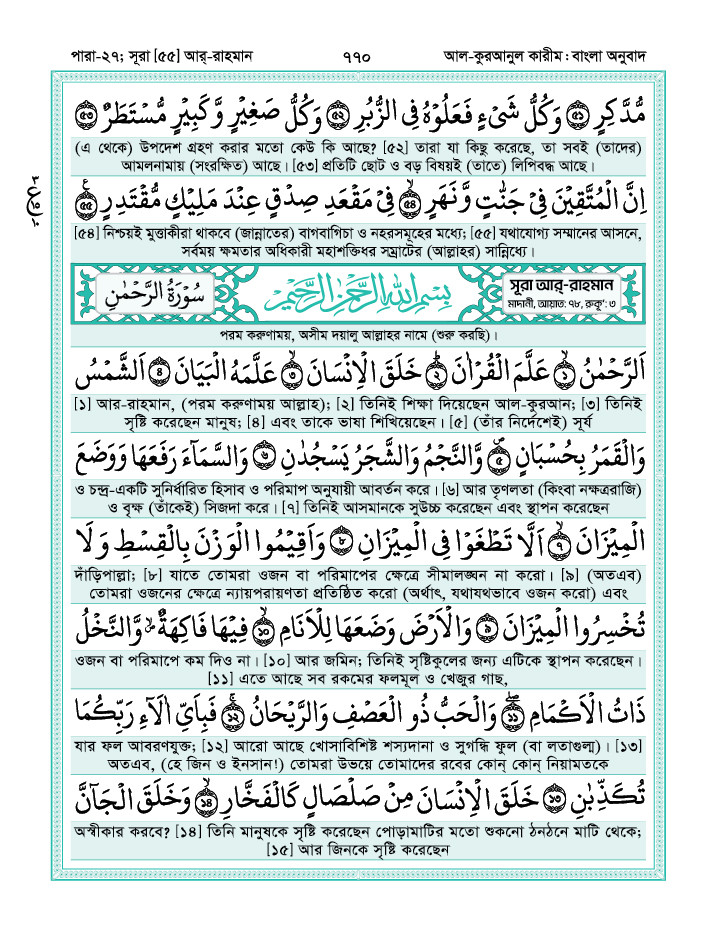 পারা-২৭; সূরা [৫৫] আর্-রাহমান ৭৭০ আল-কুরআনুল কারীম : বাংলা অনুবাদ
مُّدَّكِرٍ ۝٥١ وَكُلُّ شَىْءٍ فَعَلُوْهُ فِى الزُّبُرِ ۝٥٢ وَكُلُّ صَغِيْرٍ وَّكَبِيْرٍ مُّسْتَطَرٌ ۝٥٣
(এ থেকে) উপদেশ গ্রহণ করার মতো কেউ কি আছে? [৫২] তারা যা কিছু করেছে, তা সবই (তাদের)
আমলনামায় (সংরক্ষিত) আছে। [৫৩] প্রতিটি ছোট ও বড় বিষয়ই (তাতে) লিপিবদ্ধ আছে।
اِنَّ الْمُتَّقِيْنَ فِىْ جَنّٰتٍ وَّنَهَرٍ ۝٥٤ۙ فِىْ مَقْعَدِ صِدْقٍ عِنْدَ مَلِيْكٍ مُّقْتَدِرٍ ۝٥٥
[৫৪] নিশ্চয়ই মুত্তাকীরা থাকবে (জান্নাতের) বাগবাগিচা ও নহরসমূহের মধ্যে; [৫৫] যথাযোগ্য সম্মানের আসনে,
সর্বময় ক্ষমতার অধিকারী মহাশক্তিধর সম্রাটের (আল্লাহর) সান্নিধ্যে।
سُوْرَةُ الرَّحْمٰنِ
بِسْمِ اللهِ الرَّحْمٰنِ الرَّحِيْمِ
সূরা আর্-রাহমান
মাদানী, আয়াত: ৭৮, রুকূ': ৩
পরম করুণাময়, অসীম দয়ালু আল্লাহর নামে (শুরু করছি)।
اَلرَّحْمٰنُ ۝١ۙ عَلَّمَ الْقُرْاٰنَ ۝٢ؕ خَلَقَ الْاِنْسَانَ ۝٣ۙ عَلَّمَهُ الْبَيَانَ ۝٤ اَلشَّمْسُ
[১] আর-রাহমান, (পরম করুণাময় আল্লাহ); [২] তিনিই শিক্ষা দিয়েছেন আল-কুরআন; [৩] তিনিই
সৃষ্টি করেছেন মানুষ; [৪] এবং তাকে ভাষা শিখিয়েছেন। [৫] (তাঁর নির্দেশেই) সূর্য
وَالْقَمَرُ بِحُسْبَانٍ ۝٥ وَّالنَّجْمُ وَالشَّجَرُ يَسْجُدٰنِ ۝٦ وَالسَّمَآءَ رَفَعَهَا وَوَضَعَ
ও চন্দ্র-একটি সুনির্ধারিত হিসাব ও পরিমাপ অনুযায়ী আবর্তন করে। [৬] আর তৃণলতা (কিংবা নক্ষত্ররাজি)
ও বৃক্ষ (তাঁকেই) সিজদা করে। [৭] তিনিই আসমানকে সুউচ্চ করেছেন এবং স্থাপন করেছেন
الْمِيْزَانَ ۝٧ۙ اَلَّا تَطْغَوْا فِى الْمِيْزَانِ ۝٨ وَاَقِيْمُوا الْوَزْنَ بِالْقِسْطِ وَلَا
দাঁড়িপাল্লা; [৮] যাতে তোমরা ওজন বা পরিমাপের ক্ষেত্রে সীমালঙ্ঘন না করো। [৯] (অতএব)
তোমরা ওজনের ক্ষেত্রে ন্যায়পরায়ণতা প্রতিষ্ঠিত করো (অর্থাৎ, যথাযথভাবে ওজন করো) এবং
تُخْسِرُوا الْمِيْزَانَ ۝٩ وَالْاَرْضَ وَضَعَهَا لِلْاَنَامِ ۝١٠ۙ فِيْهَا فَاكِهَةٌ ۙ وَّالنَّخْلُ
ওজন বা পরিমাপে কম দিও না। [১০] আর জমিন; তিনিই সৃষ্টিকুলের জন্য এটিকে স্থাপন করেছেন।
[১১] এতে আছে সব রকমের ফলমূল ও খেজুর গাছ,
ذَاتُ الْاَكْمَامِ ۝١١ وَالْحَبُّ ذُو الْعَصْفِ وَالرَّيْحَانُ ۝١٢ۚ فَبِاَىِّ اٰلَآءِ رَبِّكُمَا
যার ফল আবরণযুক্ত; [১২] আরো আছে খোসাবিশিষ্ট শস্যদানা ও সুগন্ধি ফুল (বা লতাগুল্ম)। [১৩]
অতএব, (হে জিন ও ইনসান!) তোমরা উভয়ে তোমাদের রবের কোন্ কোন্ নিয়ামতকে
تُكَذِّبٰنِ ۝١٣ خَلَقَ الْاِنْسَانَ مِنْ صَلْصَالٍ كَالْفَخَّارِ ۝١٤ۙ وَخَلَقَ الْجَآنَّ
অস্বীকার করবে? [১৪] তিনি মানুষকে সৃষ্টি করেছেন পোড়ামাটির মতো শুকনো ঠনঠনে মাটি থেকে;
[১৫] আর জিনকে সৃষ্টি করেছেন